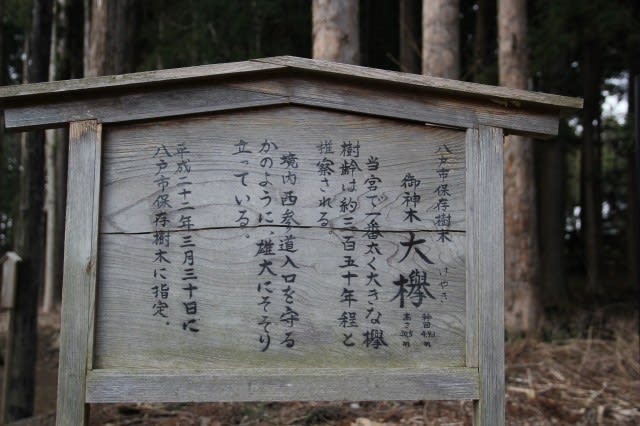 八戸市保存樹木
御神木 大欅
けやき
当宮で一番太く大きな欅
樹齢は約三百五十年程と
推察される
境内西参道入口を守る
かのように、雄大にそそり
立っている。
平成二十二年三月三十日に
八戸市保存樹木に指定。